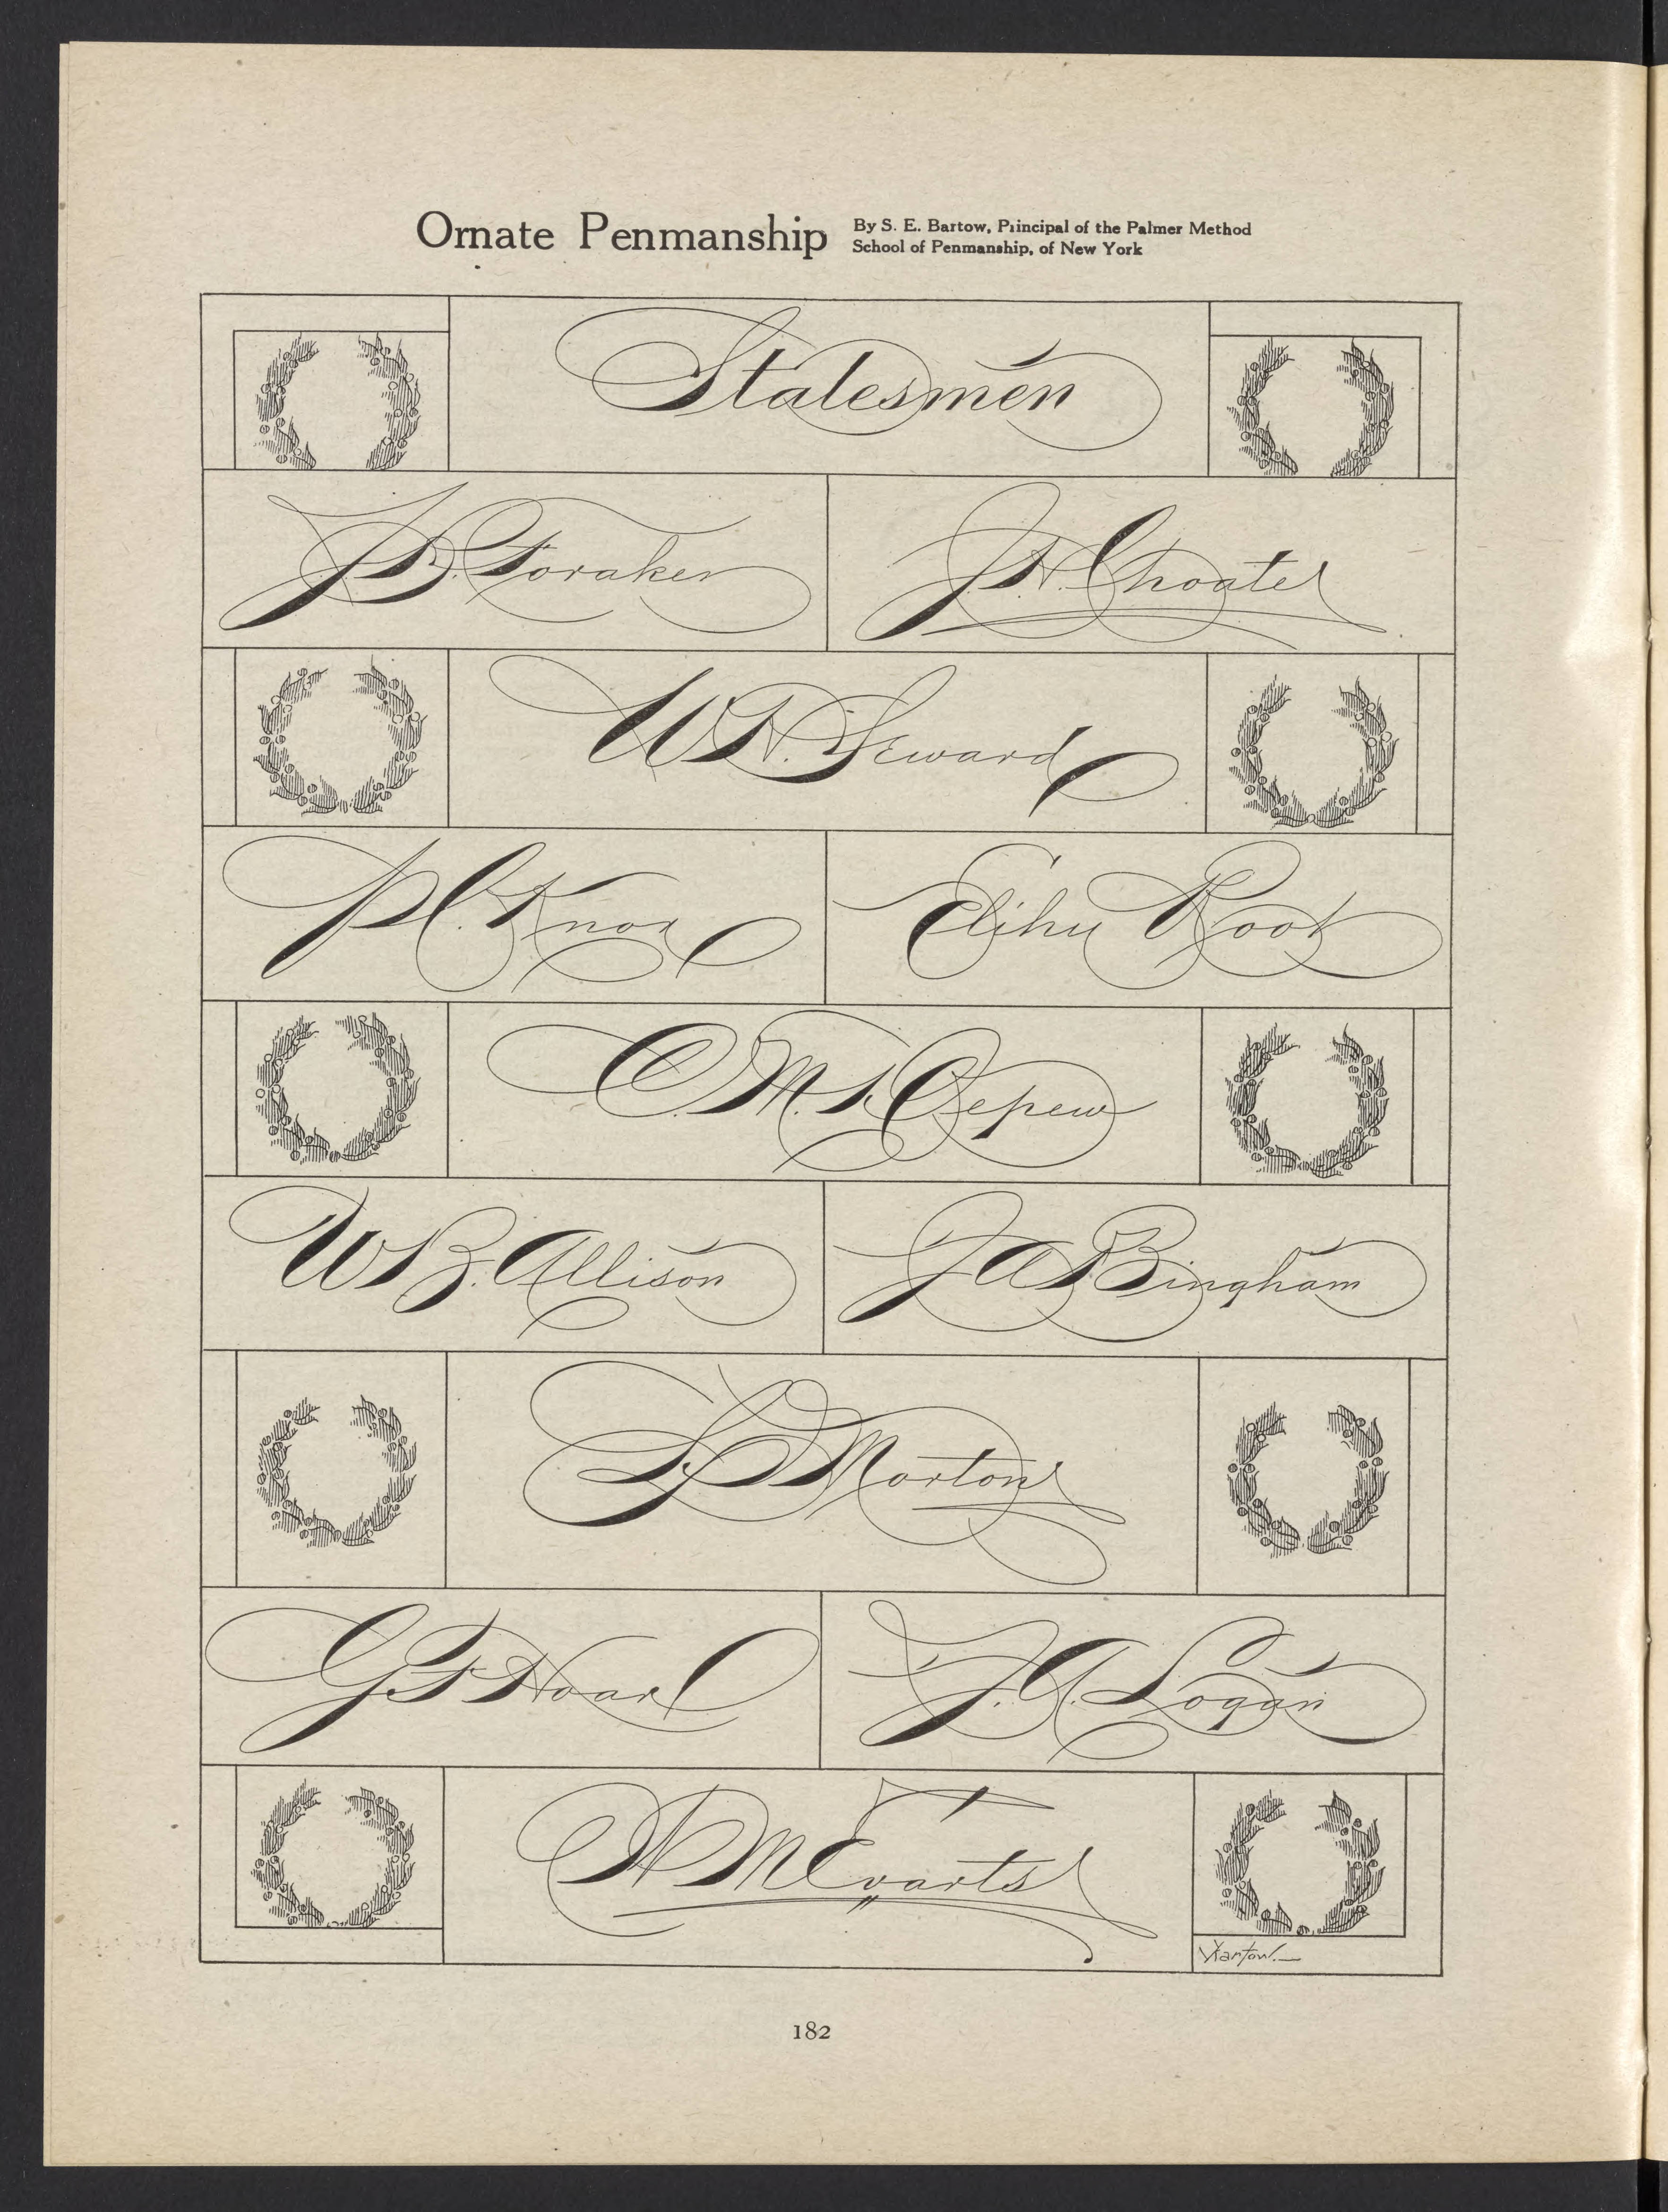 Ornate Penmanship
By S. E. Bartow, Principal of the Palmer Method
School of Penmanship, of New York
Statesmen
J. B. Foraker
J. H. Choate
W. H. Seward
P. C. Knox
Elihu Root
C. M. Depew
W. B. Allison
J. A. Bingham
L. P. Morton
G. F. Hoar
J. A. Logan
W. M. Evarts
Bartow.
182